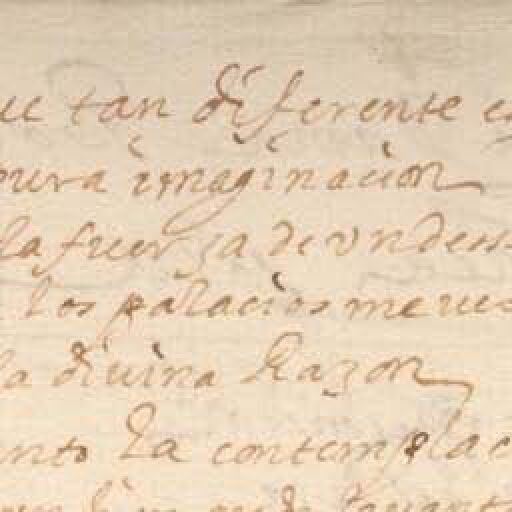 ue tan diferente es
pura imaginacion
la fuerça de vn dess
los palacios me vies
la diuina Razon
anto la contemplac